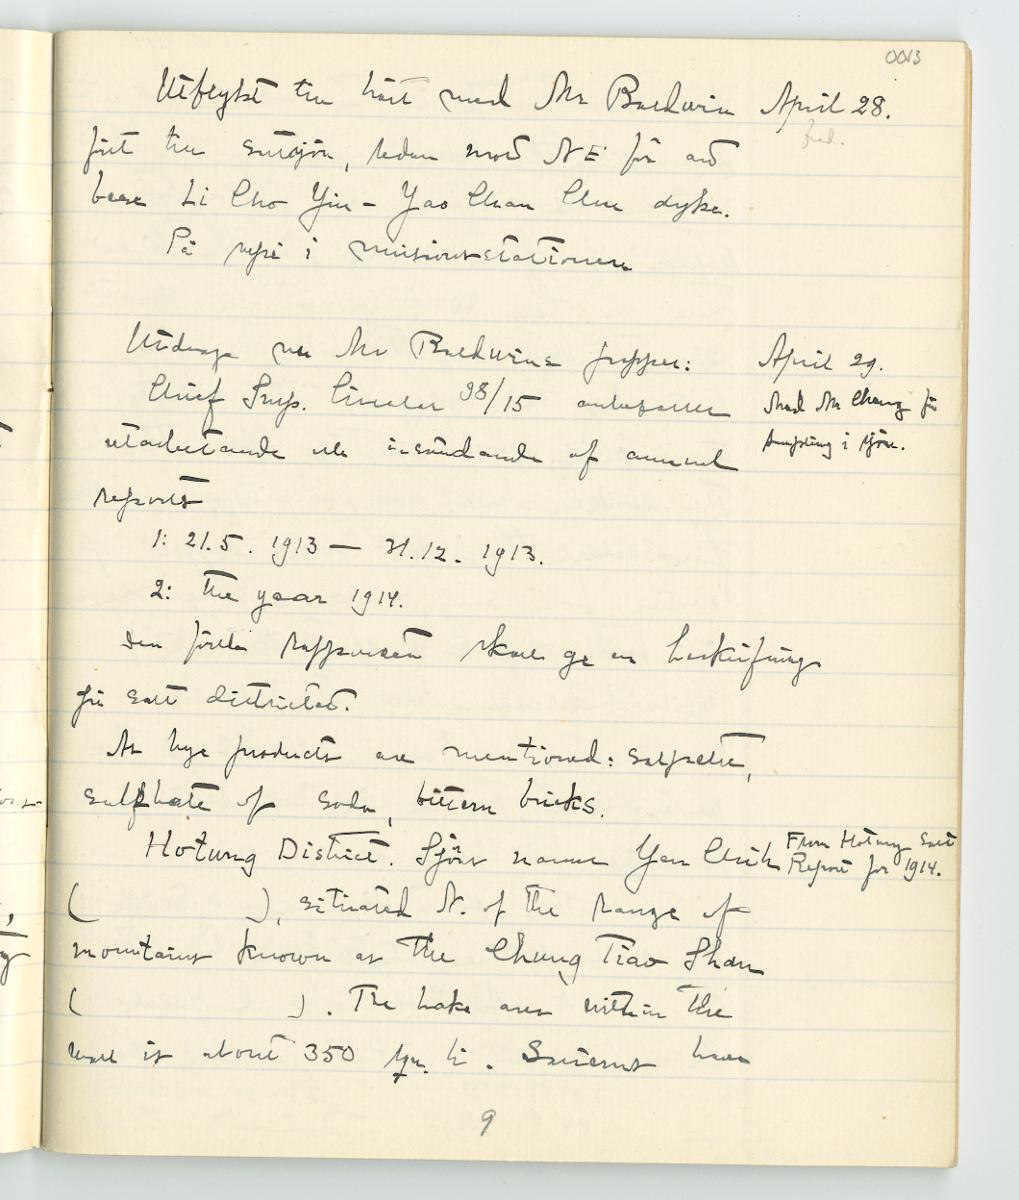 0013
Utflykt till häst med Mr Baldwin April 28.
först till saltsjön, sedan mot NE för att
bese Li Cho Yin - Yao Chan Chu dyke.
På supé i missionsstationen
Utdrag ur Mr Baldwins papper: April 29.
Chief Insp. Circular 38/15 Med Mr Chang för
utarbetande och insändande of annual i sjön.
reports
1: 21.5. 1913 — 31.12. 1913.
2: The year 1914.
den första rapporten skall ge en beskrifning
för salt districtet.
As bye products are mentioned: saltpetre,
sulphate of soda, bittern bricks.
Hotung District. Sjöns namn Yen Chih From Hotung Salt
Report for 1914.
( ), situated N. of the range of
mountains known as the Chung Tiao Shan
( ). The lake area within the
wall is about 350 sq. li. Salterns have
9